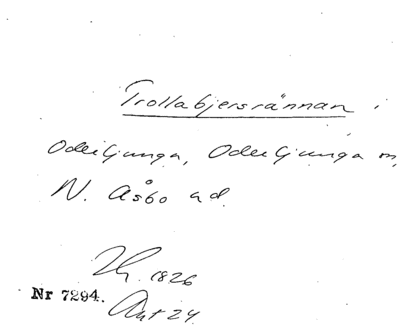 Trollabjersrännan i
Oderljunga, Oderljunga sn,
N. Åsbo hd.
1826
Nr 7294.
Ant 24